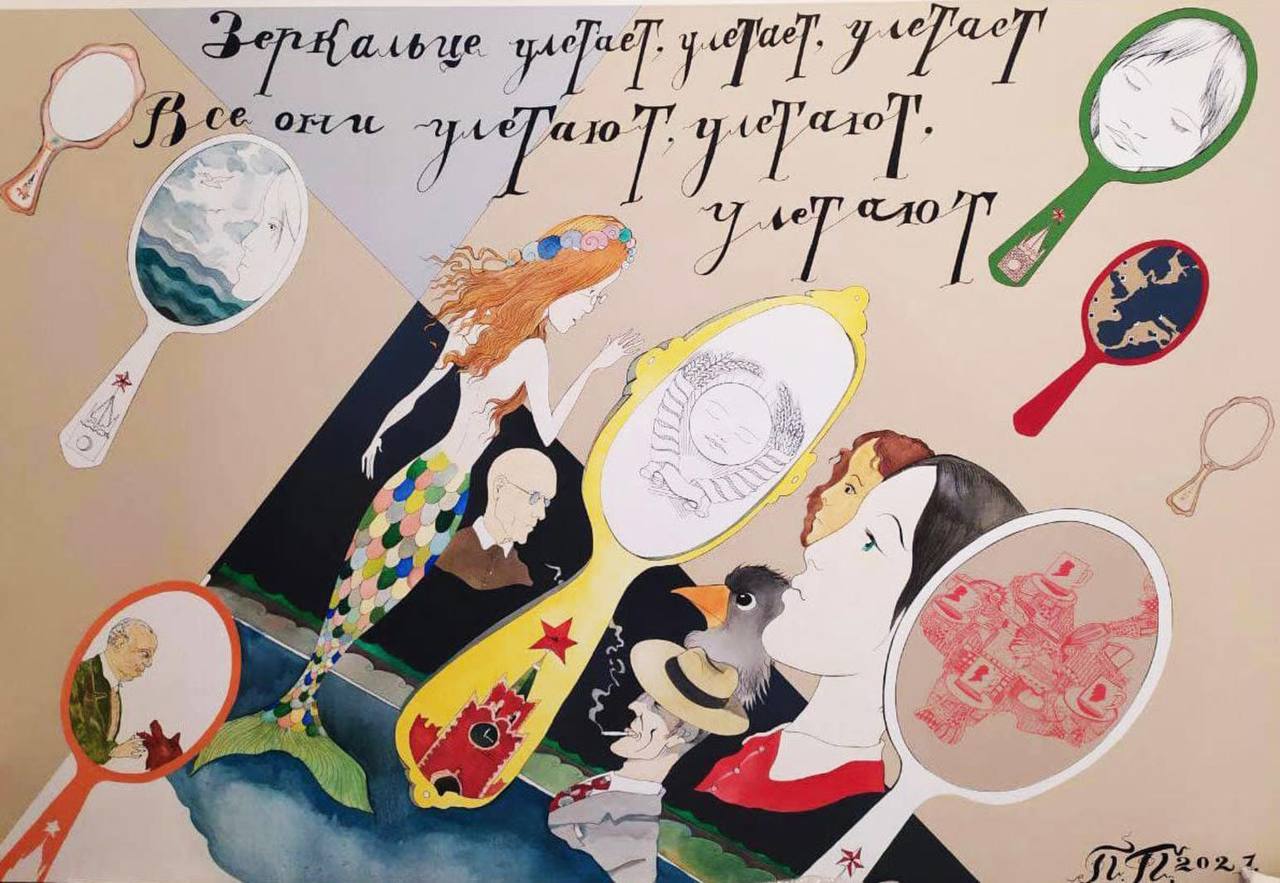 Зеркальце улетает, улетает, улетает
Все они улетают, улетают,
улетают
П.П. 2021